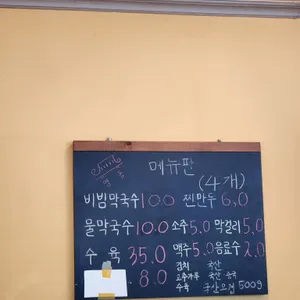 메뉴판
(4개)
비빔막국수 10.0 찐만두 6.0
물막국수 10.0 소주 5.0 막걸리 5.0
수육 35.0 맥주 5.0 음료수 2.0
8.0
김치 국산
고추가루 국산·중국
수육 국산오겹 500g